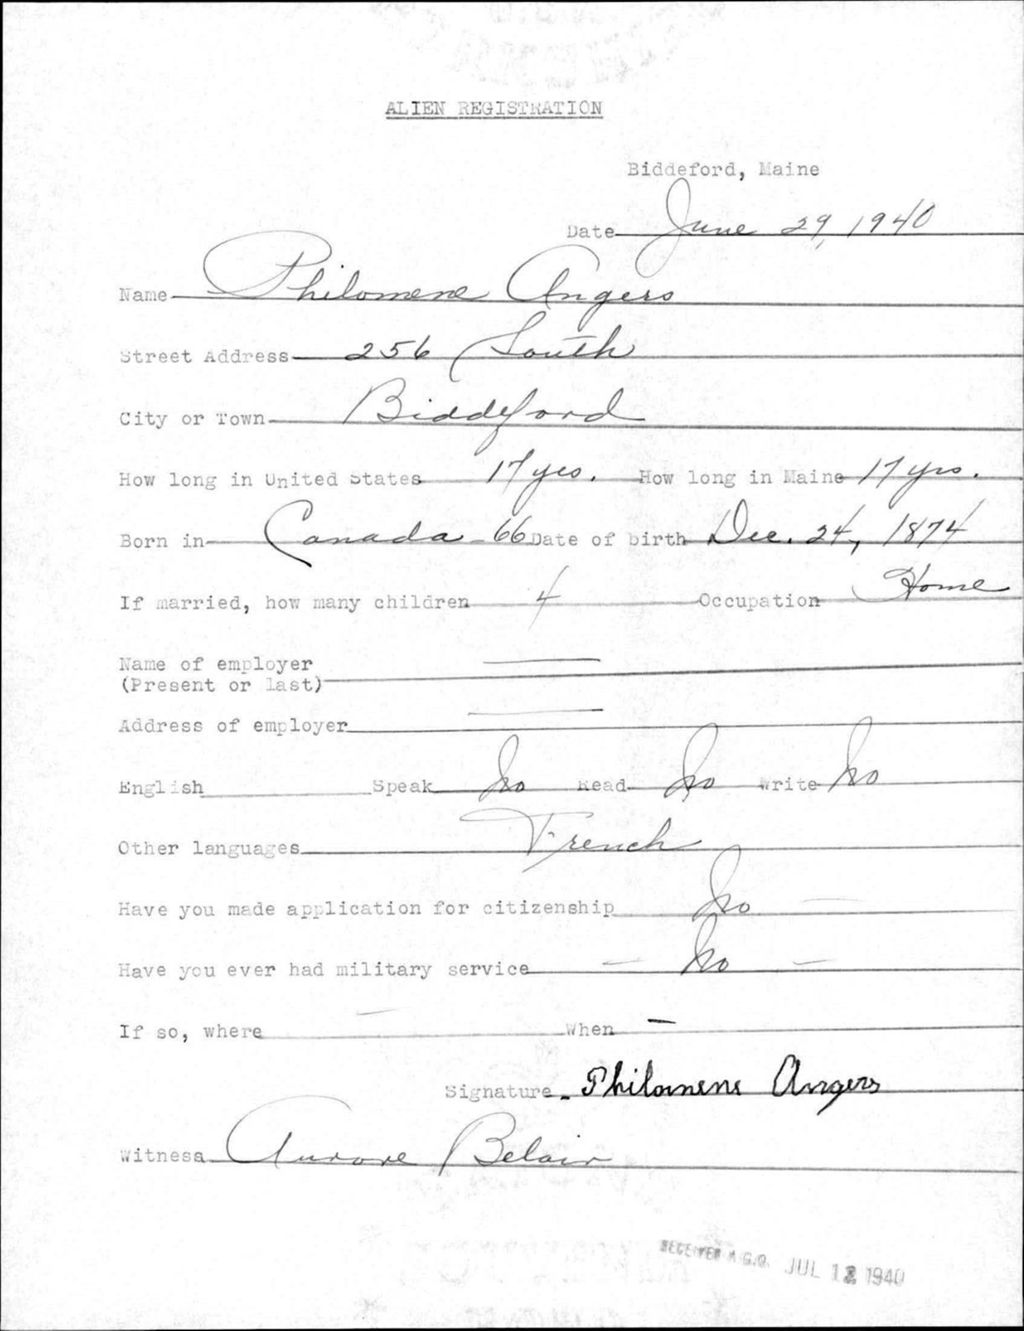 ALIEN REGISTRATION
Biddeford, Maine
Date June 29, 1940
Name Philomene Angers
Street Address 256 South
City or Town Biddeford
How long in United States 17 yrs. How long in Maine 17 yrs.
Born in Canada - 66 Date of birth Dec. 24, 1874
If married, how many children 4 Occupation Home
Name of employer —
(Present or last)
Address of employer —
English Speak No Read No Write No
Other languages French
Have you made application for citizenship No —
Have you ever had military service — No —
If so, where — When —
Signature - Philomene Angers
Witness Aurore Belair
RECEIVED A.G.O. JUL 12 1940